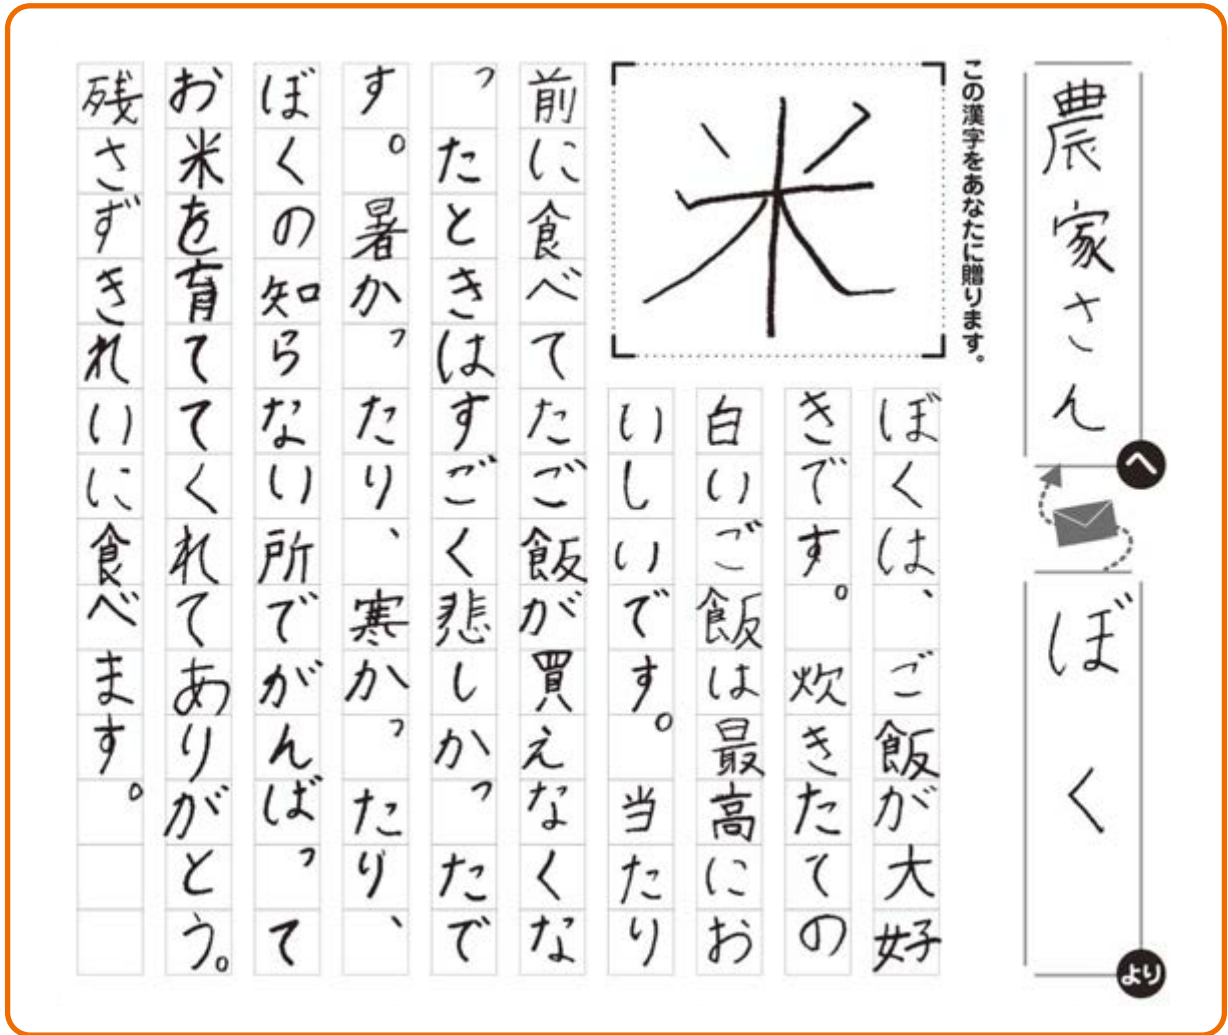 農家さん
へ
ぼく
より
この漢字をあなたに贈ります。
米
ぼくは、ご飯が大好
きです。炊きたての
白いご飯は最高にお
いしいです。当たり
前に食べてたご飯が買えなくな
ったときはすごく悲しかったで
す。暑かったり、寒かったり、
ぼくの知らない所でがんばって
お米を育ててくれてありがとう。
残さずきれいに食べます。